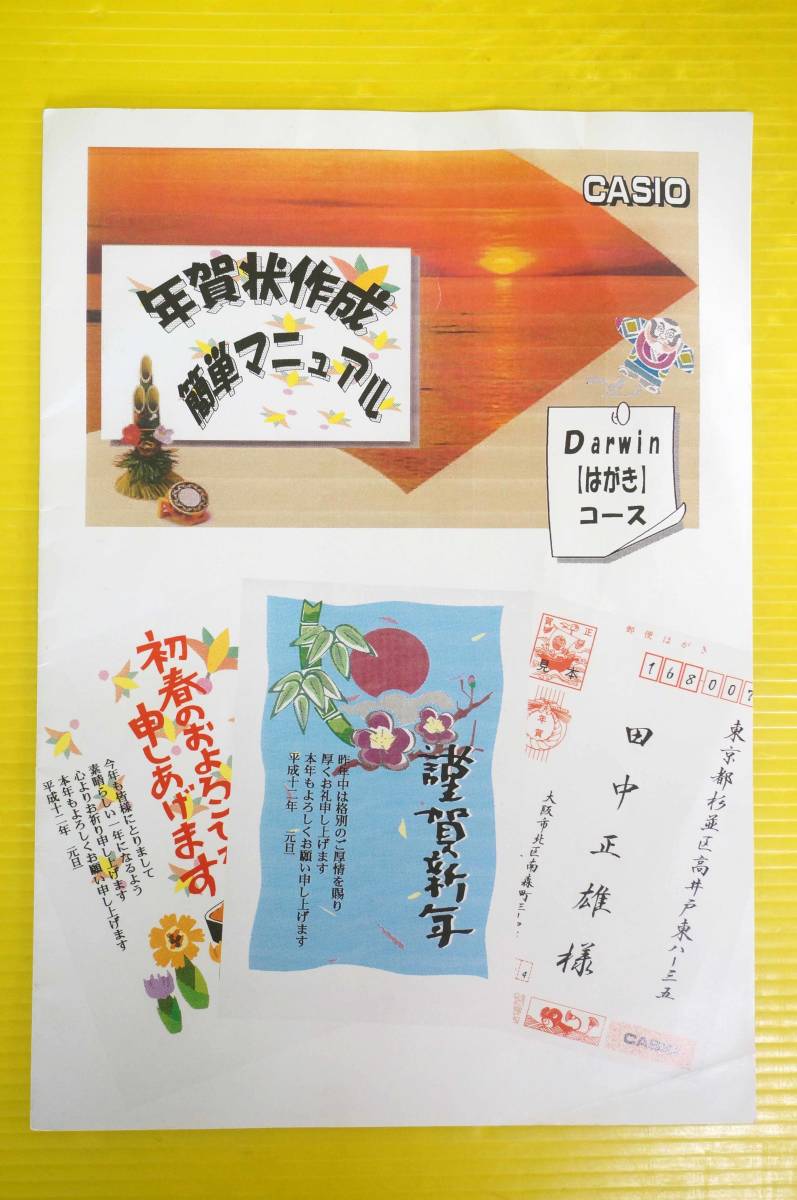 CASIO
年賀状作成
簡単マニュアル
Darwin
【はがき】
コース
初春のおよろこび
申しあげます
今年も皆様にとりまして
素晴らしい一年になるよう
心よりお祈り申し上げます
本年もよろしくお願い申し上げます
平成十二年 元旦
謹賀新年
昨年中は格別のご厚情を賜り
厚くお礼申し上げます
本年もよろしくお願い申し上げます
平成十二年 元旦
賀正
見本
年賀
郵便はがき
168007
東京都杉並区高井戸東八ー三五
田中正雄様
大阪市北区南森町三ー
4
CASIO